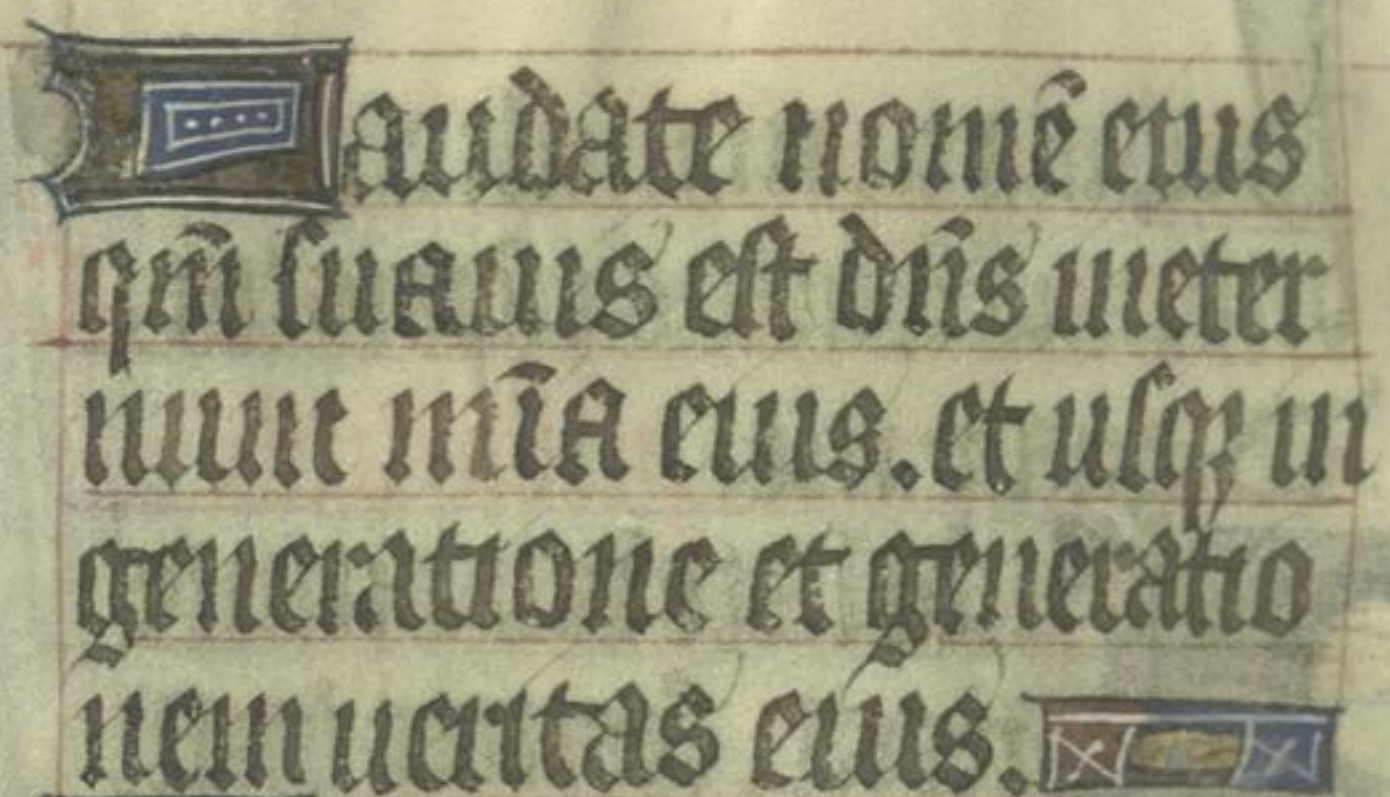 Laudate nomẽ eius
qm̃ suauis est dñs in eter
num mĩa eius. et usqꝫ in
generatione et generatio
nem ueritas eius.